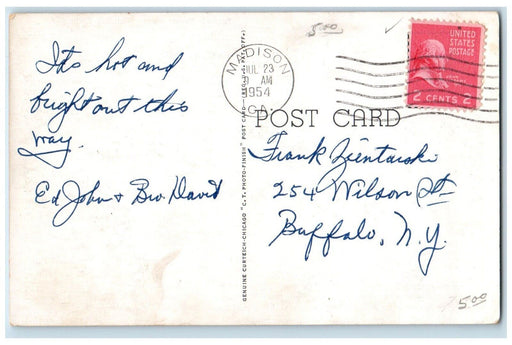 5.00
MADISON
JUL 23
AM
1954
CA.
UNITED
STATES
POSTAGE
2 CENTS 2
POST CARD
Its hot and
bright out this
way.
Ed, John & Bro. David
GENUINE CURTEICH-CHICAGO "C.T. PHOTO-FINISH" POST CARD—(REG. U.S. PAT. OFF.)
Frank Zientarski
254 Wilson St
Buffalo, N.Y.
5.00